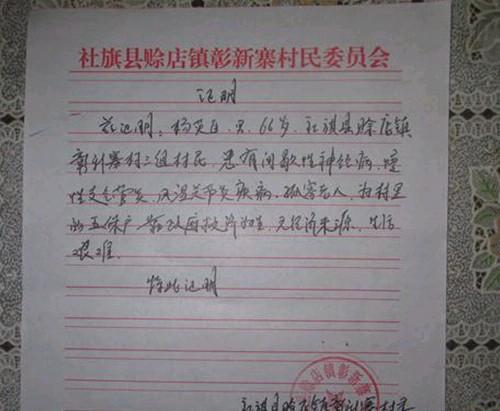 社旗县赊店镇彰新寨村民委员会
证明
兹证明：杨 男，66岁，社旗县赊店镇
彰新寨村三组村民，患有间歇性神经病，慢
性支气管炎，风湿关节炎疾病，孤寡老人，为村里
的五保户 靠政府救济为生，无经济来源，生活
艰难.
特此证明
店镇彰新寨
社旗县赊店镇彰新寨村委